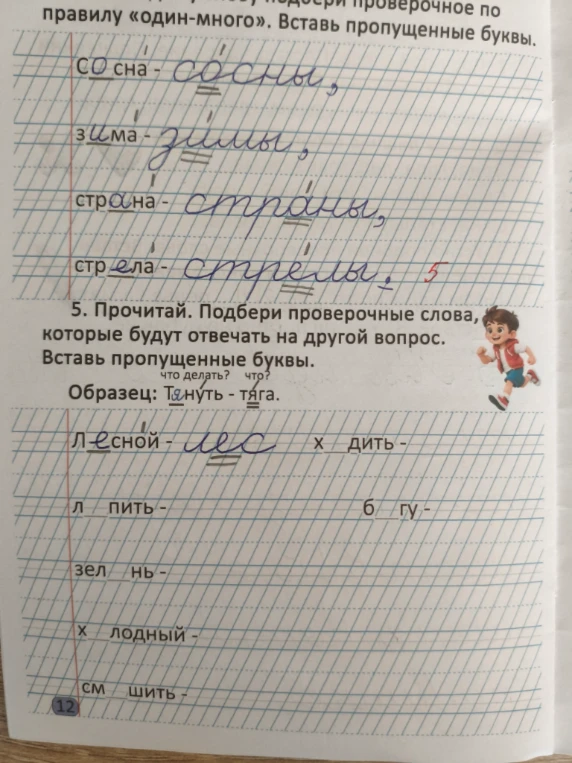 подбери проверочное по
правилу «один-много». Вставь пропущенные буквы.
Сосна - сосны,
зима - зимы,
страна - страны,
стрела - стрелы. 5
5. Прочитай. Подбери проверочные слова,
которые будут отвечать на другой вопрос.
Вставь пропущенные буквы.
что делать? что?
Образец: Тяну́ть - тяга.
Лесной - лес х дить -
л пить - б гу -
зел нь -
х лодный -
см шить -
12